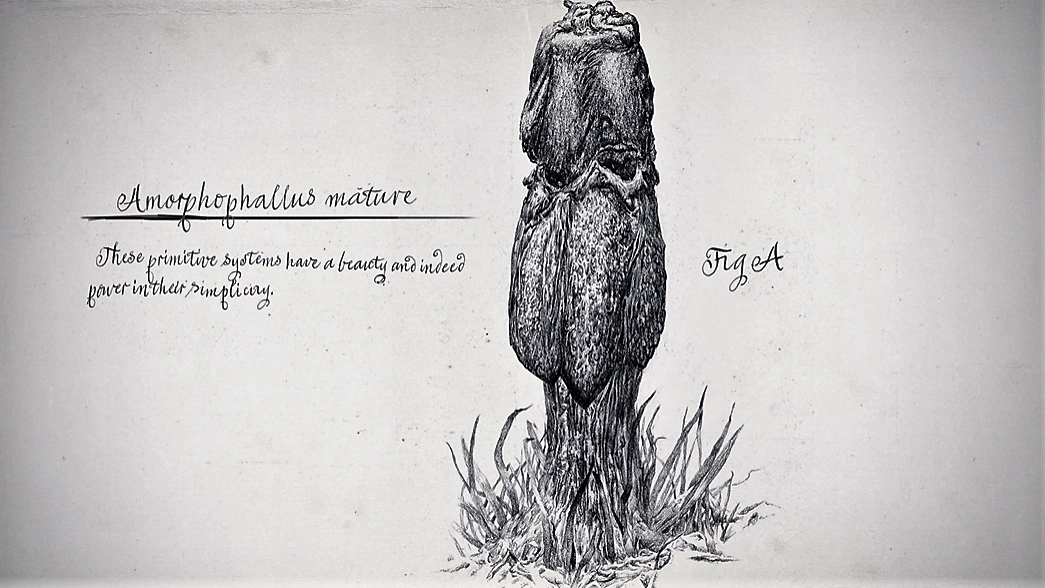 Amorphophallus mature
These primitive systems have a beauty and indeed
power in their simplicity.
Fig A